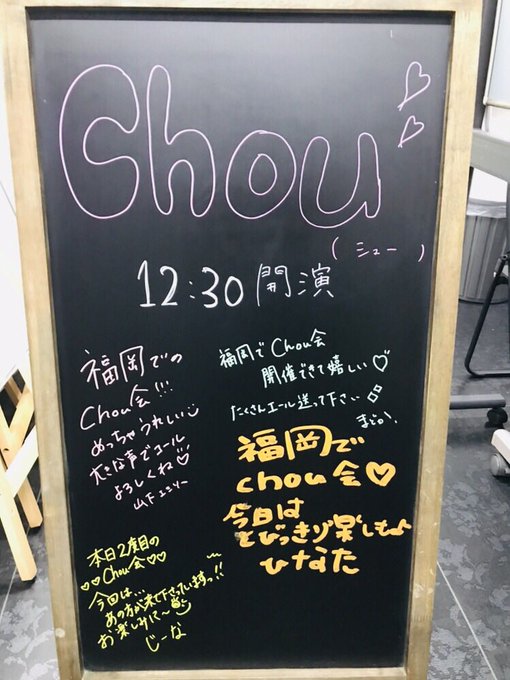 Chou
(シュー)
12:30 開演
福岡での
Chou会!!!
めっちゃうれしい
大きな声でコール
よろしくね♡
山下エミリー
福岡でChou会
開催できて嬉しい♡
たくさんエール送って下さい
まどか!
福岡で
chou会♡
今日は
とびっきり楽しもよ
ひなた
本日2度目の
♡♡Chou会♡♡
今回は…
あの方が来て下さっていますっ!!
お楽しみに〜
じーな